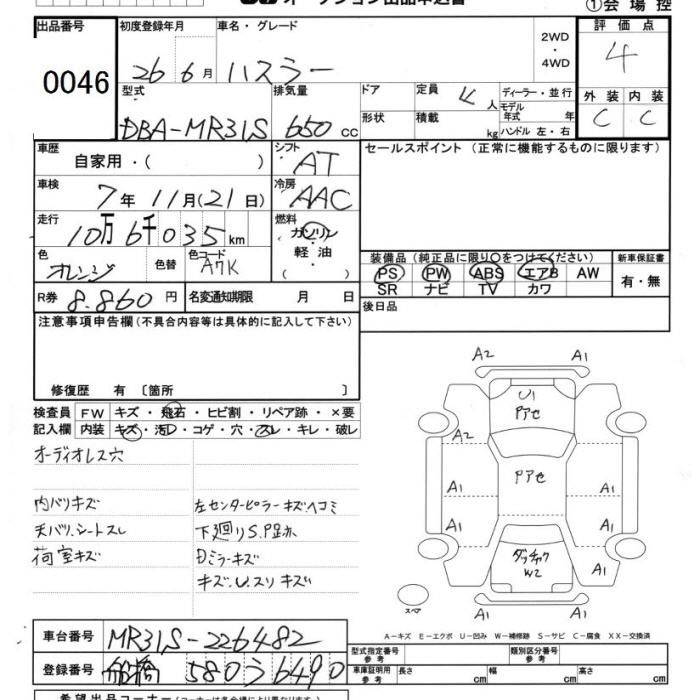 ①会場控
出品番号 初度登録年月 車名・グレード 2WD・4WD 評価点
0046 26 6月 ハスラー 4
型式 排気量 ドア 定員 4人 ディーラー・並行 外装 内装
DBA-MR31S 650cc 形状 積載 kg モデル年式 年 ハンドル 左・右 C C
車歴 自家用・( ) シフト AT セールスポイント (正常に機能するものに限ります)
車検 7年11月(21日) 冷房 AAC
走行 10万6千035km 燃料 ガソリン・軽油・( )
色 オレンジ 色替 色コード A7K 装備品 (純正品に限り○をつけてください) 新車保証書
PS PW ABS エアB AW 有・無
SR ナビ TV カワ
R券 8,860円 名変通知期限 月 日 後日品
注意事項申告欄(不具合内容等は具体的に記入して下さい)
修復歴 有 〔箇所 〕
検査員 FW キズ・飛石・ヒビ割・リペア跡・×要
記入欄 内装 キズ・汚れ・コゲ・穴・スレ・キレ・破レ
オーディオレス穴
内バリキズ 左センターピラーキズヘコミ
天バリ、シートスレ 下廻りS.P跡
荷室キズ Dミラーキズ
キズ、U、スリキズ
A2 A1
U1
Pアセ
A2
Pアセ
A1 A1
A1 A1
ダッチャク
W2
A1
スペア A1
A-キズ E-エクボ U-凹み W-補修跡 S-サビ C-腐食 XX-交換済
車台番号 MR31S-226482 型式指定番号 参考 類別区分番号 参考
登録番号 船橋 580 う 6490 車庫証明用 参考 長さ cm 幅 cm 高さ cm